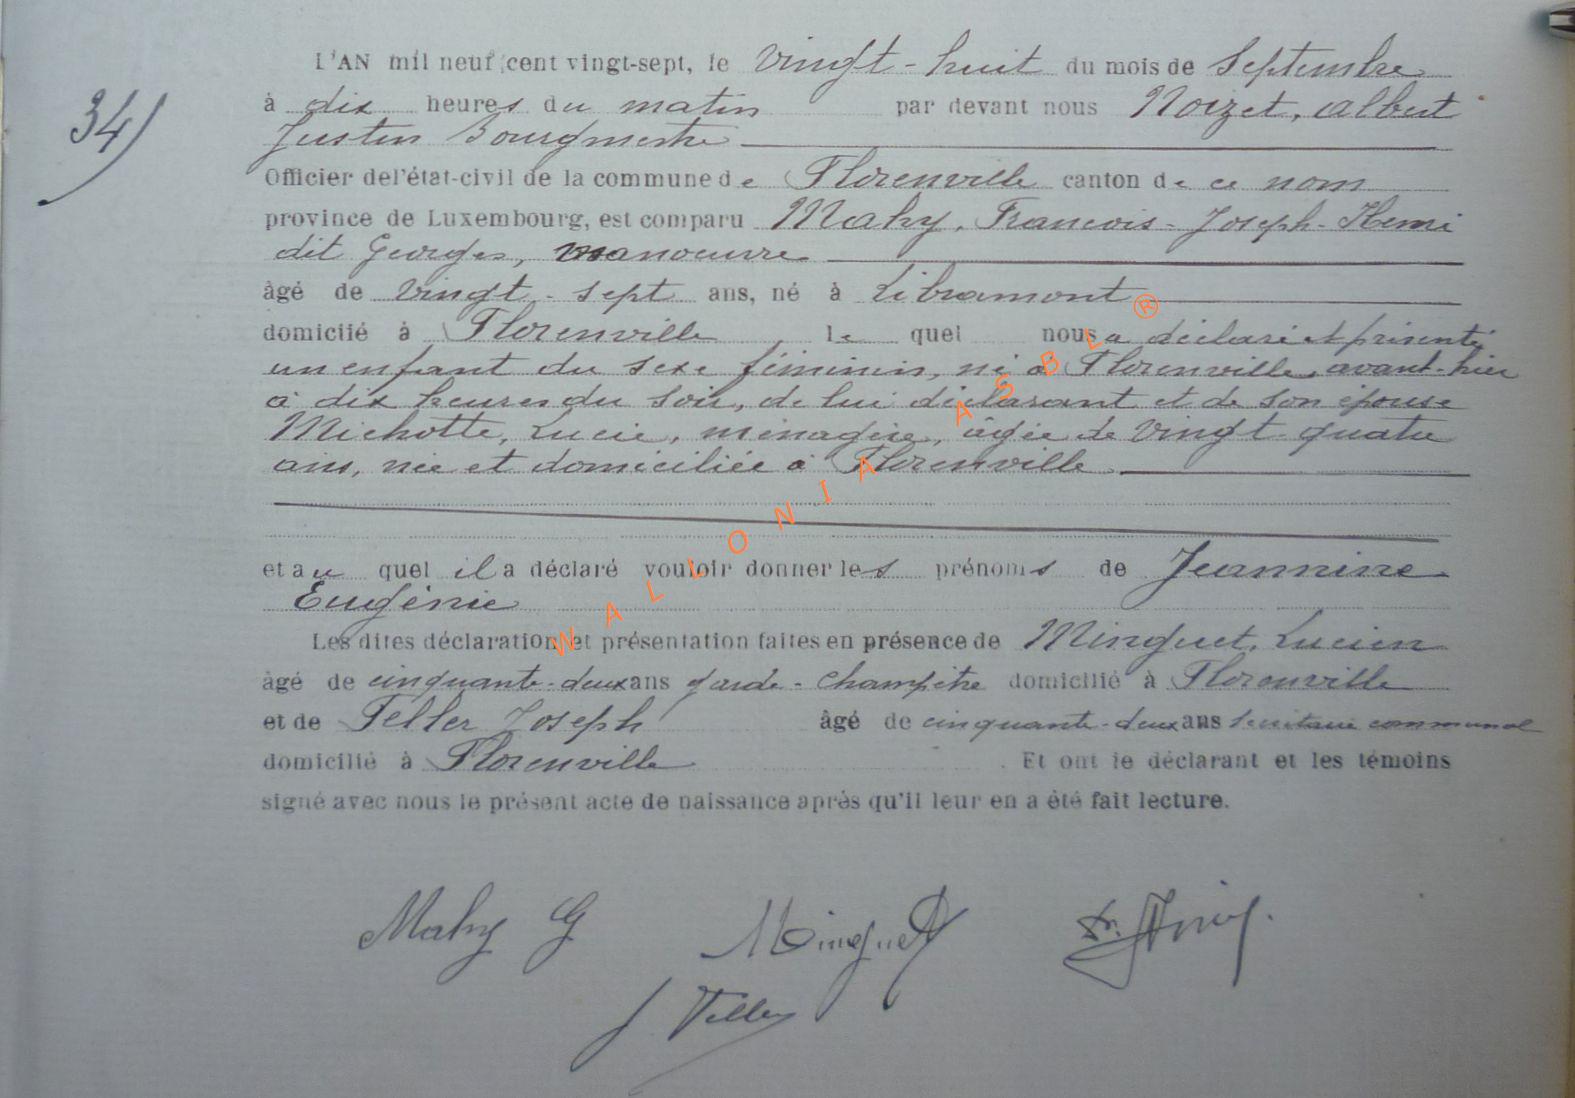 34)
L'AN mil neuf cent vingt-sept, le vingt-huit du mois de Septembre
à dix heures du matin par devant nous Noizet, Albert
Justin Bourgmestre
Officier de l'état-civil de la commune de Florenville canton de ce nom
province de Luxembourg, est comparu Mahy, François-Joseph-Henri
dit Georges, manoeuvre
âgé de vingt-sept ans, né à Libramont
domicilié à Florenville, le quel nous a déclaré et présenté
un enfant du sexe féminin, né à Florenville, avant-hier
à dix heures du soir, de lui déclarant et de son épouse
Michotte, Lucie, ménagère, âgée de vingt-quatre
ans, née et domiciliée à Florenville
et au quel il a déclaré vouloir donner les prénoms de Jeannine
Eugénie
Les dites déclaration et présentation faites en présence de Minguet, Lucien
âgé de cinquante-deux ans garde-champêtre domicilié à Florenville
et de Feller Joseph âgé de cinquante-deux ans secrétaire communal
domicilié à Florenville. Et ont le déclarant et les témoins
signé avec nous le présent acte de naissance après qu'il leur en a été fait lecture.
Mahy G Minguet
J. Feller
WALLONIA ASBL ®